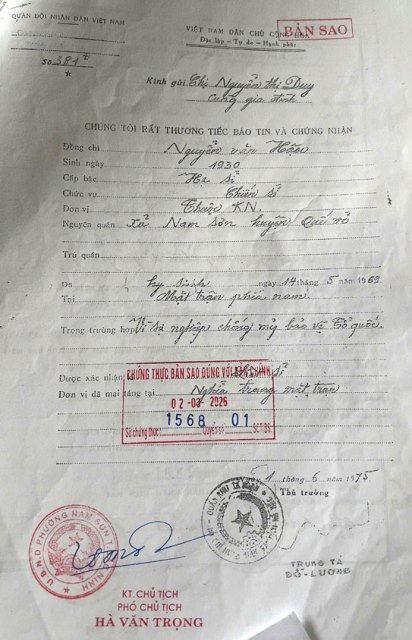 QUÂN ĐỘI NHÂN DÂN VIỆT NAM
VIỆT NAM DÂN CHỦ CỘNG HÒA
Độc lập - Tự do - Hạnh phúc
BẢN SAO
SỐ 381
Kính gửi Chị Nguyễn Thị Duy
cùng gia đình
CHÚNG TÔI RẤT THƯƠNG TIẾC BÁO TIN VÀ CHỨNG NHẬN
Đồng chí Nguyễn văn
Sinh ngày 1930
Cấp bậc Hạ sĩ
Chức vụ Chiến sĩ
Đơn vị Thuộc KN.
Nguyên quán xã Nam sơn huyện Quế võ
Trú quán
Đã hy sinh ngày 14 tháng 5 năm 1969
Tại Mặt trận phía nam.
Trong trường hợp Vì sự nghiệp chống mỹ bảo vệ Tổ quốc.
Được xác nhận sĩ
Đơn vị đã mai táng tại Nghĩa trang mặt trận
CHỨNG THỰC BẢN SAO ĐÚNG VỚI BẢN CHÍNH
02-03-2026
1568 01
Số chứng thực Quyển số SCT/BS
tháng 6 năm 1975
Thủ trưởng
U.B.N.D PHƯỜNG NAM SƠN
NINH
TRUNG TÁ
ĐỖ-LƯƠNG
KT. CHỦ TỊCH
PHÓ CHỦ TỊCH
HÀ VĂN TRỌNG